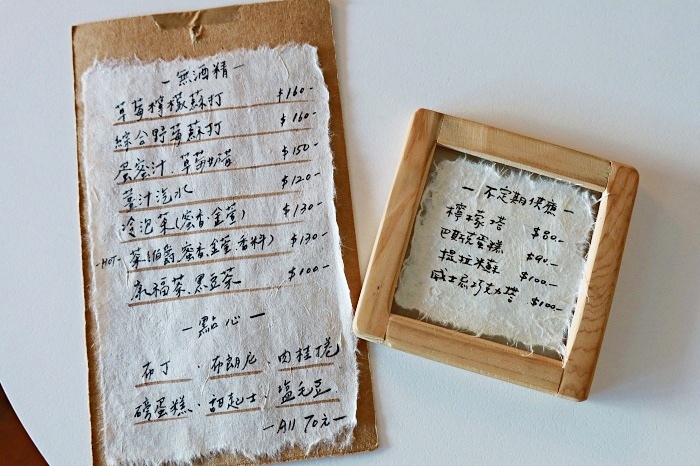 －無酒精－
草莓檸檬蘇打 $160-
綜合野莓蘇打 $160-
蛋蜜汁．草莓奶昔 $150-
薑汁汽水 $120-
冷泡茶(蜜香．金萱) $130-
-HOT- 茶(伯爵．蜜香．金萱．香料) $130-
幸福茶．黑豆茶 $100-
－點心－
布丁．布朗尼．肉桂捲
磅蛋糕．甜起士．塩毛豆
－All 70元－
－不定期供應－
檸檬塔 $80-
巴斯克蛋糕 $90-
提拉米蘇 $100-
威士忌巧克力塔 $100-